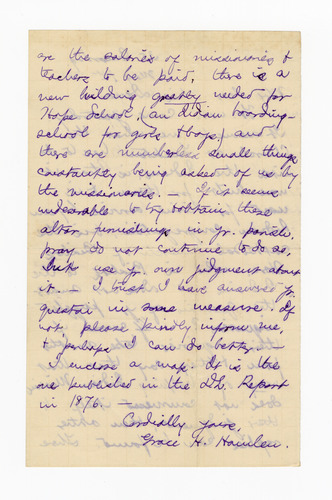 are the salaries of missionaries &
teachers to be paid, there is a
new building greatly needed for
Hope School, (an Indian boarding-
school for girls & boys,) and
there are numberless small things
constantly being asked of us by
the missionaries. — If it seems
undesirable to try & obtain these
altar furnishings in yr. parish,
pray do not continue to do so,
but use yr. own judgment about
it. — I trust I have answered yr.
question in some measure. If
not, please kindly inform me,
& perhaps I can do better. —
I enclose a map. It is the
one published in the Report
in 1876. —
Cordially yours,
Grace H.